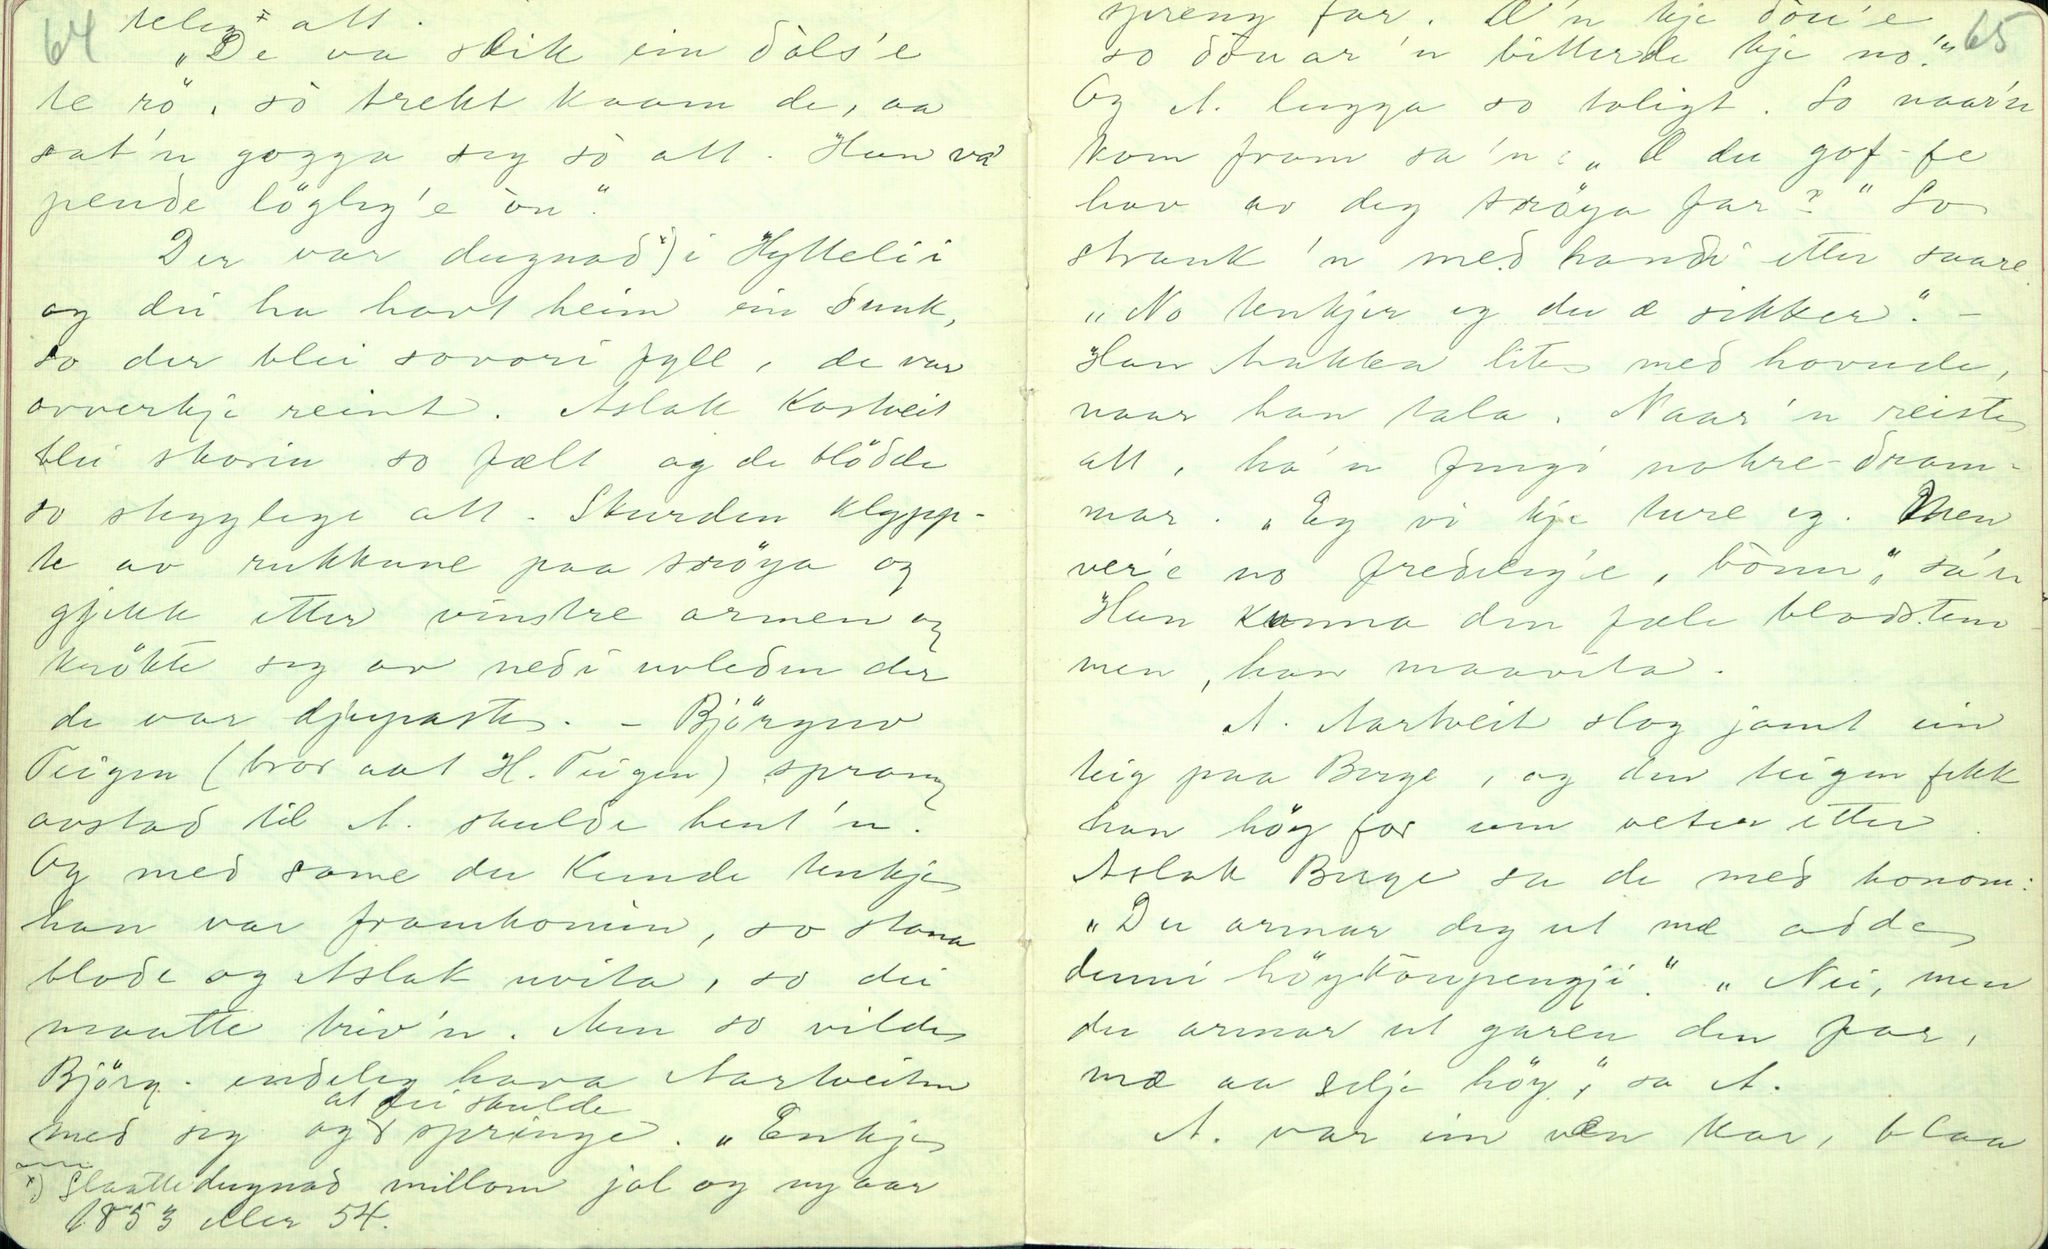 64
teleg x att.
"De va slik ein dòls'e
te rö, sò trekt kaam de, aa
sat'n gogga seg sò att. Han va
pende löglig'e òn."
Der var dugnad x) i Hylleli i
og dei ha havt heim ein dunk,
so der blei sovori fyll, de var
ovverkje reint. Aslak Kostveit
blei skorin so fælt og de blödde
so stygglege att. Skurden klypp-
te av rukkune paa snöya og
gjekk etter vinstre armen og
krökte seg av nedi uvleden der
de var djupaste. - Björguv
Teigen (bror aat H. Teigen) sprang
avstad til A. skulde hent'n.
Og med same dei kunde tenkje
han var framkomin, so stana
blode og Aslak uvita, so dei
maatte triv'n. Men so vilde
Björg. endeleg hava Aartveiten
med seg og at dei skulde springe. "Enkje
x) Slaattedugnad millom jol og nyaar
1853 eller 54.
65
spreng far. Æ'n kje döu'e
so döuar'n bitterde kje no."
Og A. lugga so toligt. So naar'n
kom fram sa'n: "Æ du gof-fe
hav av deg snöya far?" So
strauk'n med handi etter saare
"No tenkjer eg du æ sikker." -
Han hakka lite med hovude,
naar han tala. Naar'n reiste
att, ha'n fingi nokre dram-
mar. "Eg vi kje ture eg. Men
ver'e no fredeleg'e, bònn," sa'n
Han kunna den fæle blodstem
men, han maavita.
A. Aartveit slog jamt ein
teig paa Berge, og den teigen fekk
han höy for um veteren etter.
Aslak Berge sa de med honom:
"Du armar deg ut mæ adde
denni höykaupengji." "Nei, men
du armar ut garen den far,
mæ aa selje höy," sa A.
A. var ein ven kar, blaa